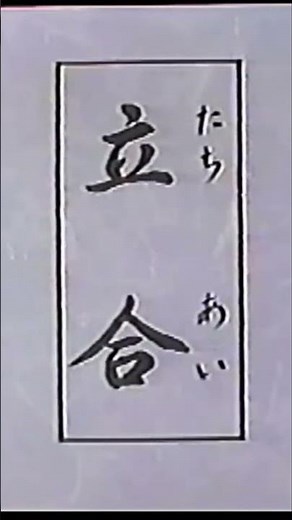 立合
たちあい